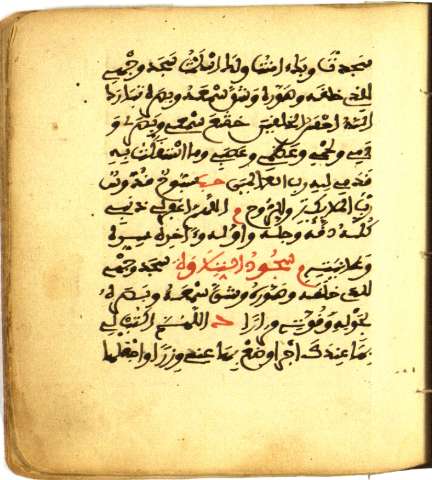 سجدت وبك امنت ولك اسلمت سجد وجهي
للذي خلقه وصوره وشق سمعه وبصره تبارك
الله احسن الخلقين خشع سمعي وبصري و
دمي ولحمي وعظمي وعصبي وما استقلت به
قدمي لله رب العالمين سبوح قدوس
رب الملائكة والروح اللهم اغفر لي ذنبي
كله دقه وجله واوله وءاخره سره
وعلانيته سجود التلاوة سجد وجهي
للذي خلقه وصوره وشق سمعه وبصره
بحوله وقوته مرارا اللهم اكتب لي
بها عندك اجرا وضع بها عني وزرا واجعلها